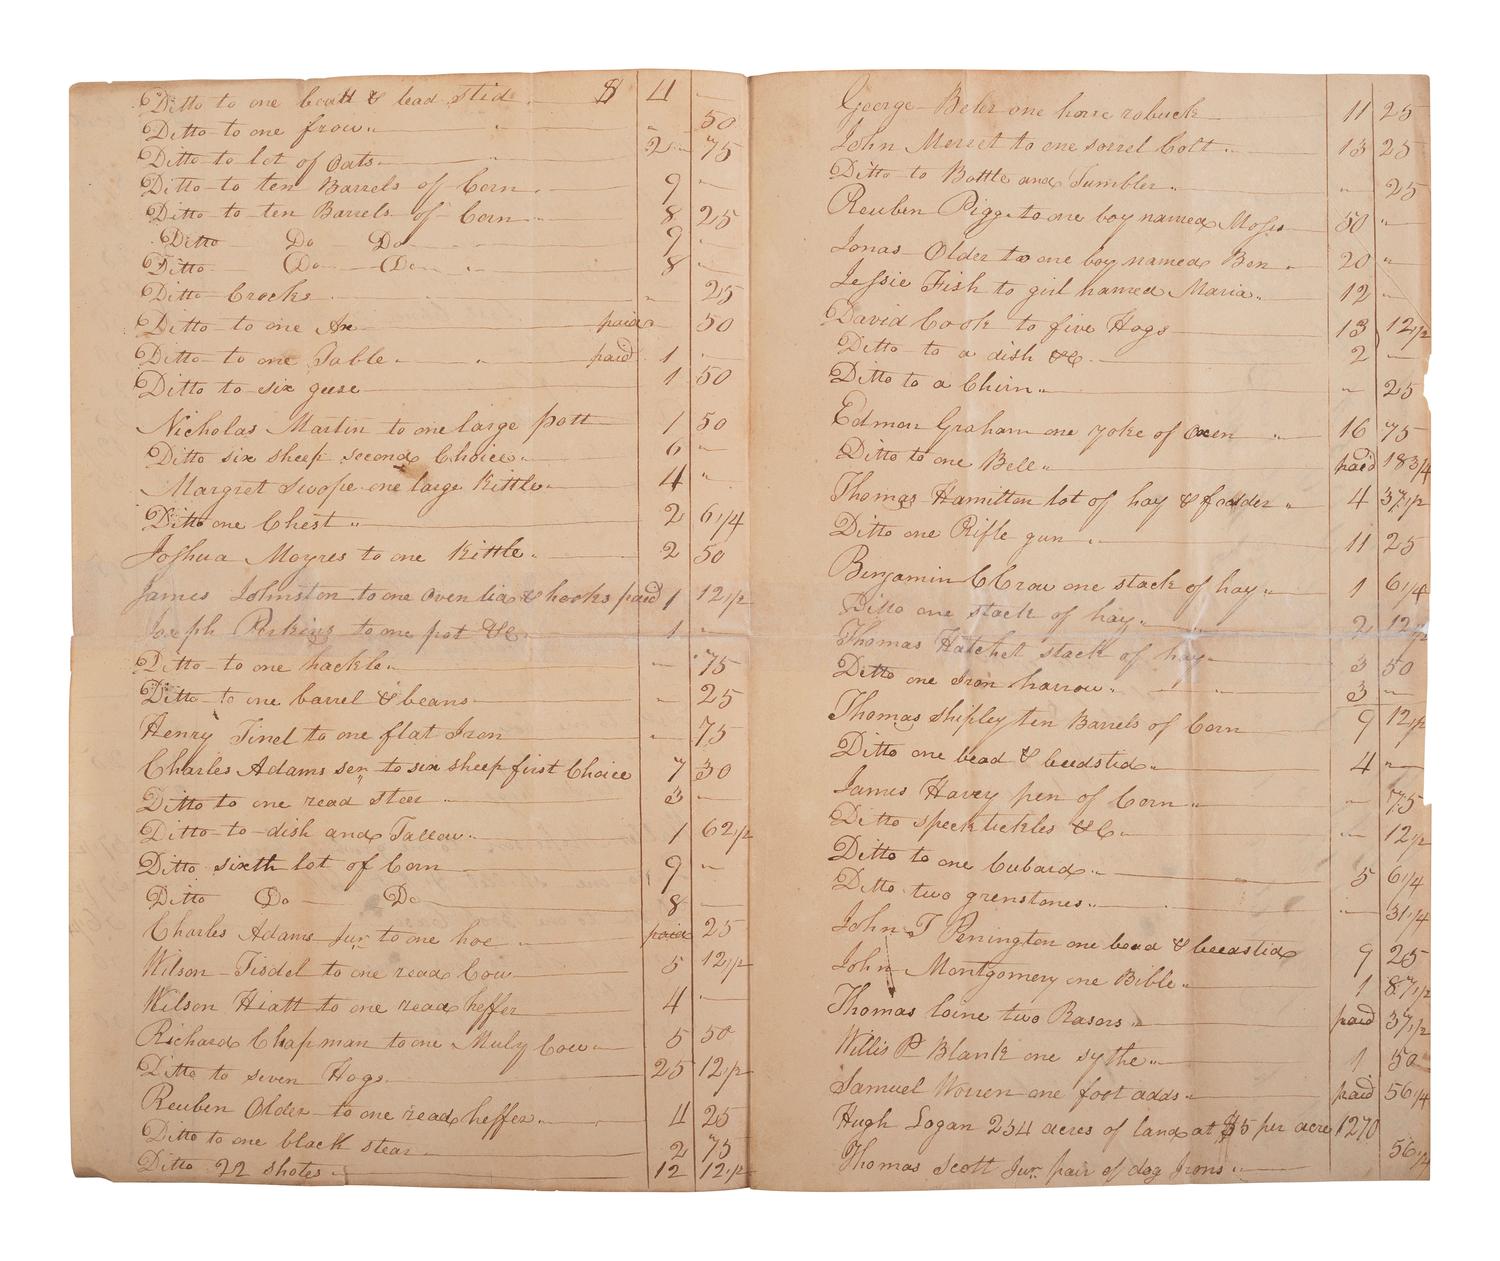 Ditto to one beatt & bead stid $ 4 "
Ditto to one frow " " 50
Ditto to lot of oats 2 75
Ditto to ten Barrels of Corn 9 "
Ditto to ten Barrels of Corn 8 25
Ditto Do Do 9 "
Ditto Do Do 8 "
Ditto Crocks " 25
Ditto to one Ax paid " 50
Ditto to one Table " paid 1 "
Ditto to six geese 1 50
Nicholas Martin to one large pott 1 50
Ditto six sheep second Choice 6 "
Margret Swope one large Kittle 4 "
Ditto one Chest " 2 6 1/4
Joshua Moyres to one Kittle 2 50
James Johnston to one oven lid & hooks paid 1 12 1/2
Joseph Perkins to one pot &C 1 "
Ditto to one hackle " 75
Ditto to one barrel & beans " 25
Henry Tinel to one flat Iron " 75
Charles Adams sen to six sheep first Choice 7 30
Ditto to one read steer 3 "
Ditto to dish and Tallow 1 62 1/2
Ditto sixth lot of Corn 9 "
Ditto Do Do 8 "
Charles Adams Jur to one hoe paid 25
Wilson Tisdel to one read Cow 5 12 1/2
Wilson Hiatt to one read heffer 4 "
Richard Chapman to one Muly Cow 5 50
Ditto to seven Hogs 25 12 1/2
Reuben Older to one read heffer 4 25
Ditto to one black stear 2 75
Ditto 22 shotes 12 12 1/2
George Beler one horse robuck 11 25
John Merret to one sorrel Colt 13 25
Ditto to Bottle and Tumbler " 25
Reuben Pigg to one boy named Moses 50 "
Jonas Older to one boy named Ben 20 "
Jessie Fish to girl named Maria 12 "
David Cook to five Hogs 13 12 1/2
Ditto to a dish &C 2 "
Ditto to a Churn " 25
Edmon Graham one yoke of Oxen 16 75
Ditto to one Bell paid 18 3/4
Thomas Hamilton lot of hay & fodder 4 37 1/2
Ditto one Rifle gun 11 25
Benjamin CCrow one stack of hay 1 6 1/4
Ditto one stack of hay 2 12 1/2
Thomas Hatchet stack of hay 3 50
Ditto one Iron harrow 3 "
Thomas Shipley ten Barrels of Corn 9 12 1/2
Ditto one bead & beedstid 4 "
James Havey pen of Corn " 75
Ditto specktickles &C " 12 1/2
Ditto to one Cubard 5 6 1/4
Ditto two grenstones " 31 1/4
John T Penington one bead & beedstid 9 25
John Montgomery one Bible 1 87 1/2
Thomas Laine two Rasors paid 37 1/2
Willis P Blank one sythe 1 50
Samuel Woren one foot adds paid 56 1/4
Hugh Logan 254 acres of land at $5 per acre 1270
Thomas Scott Jur pair of dog Irons 56 1/4